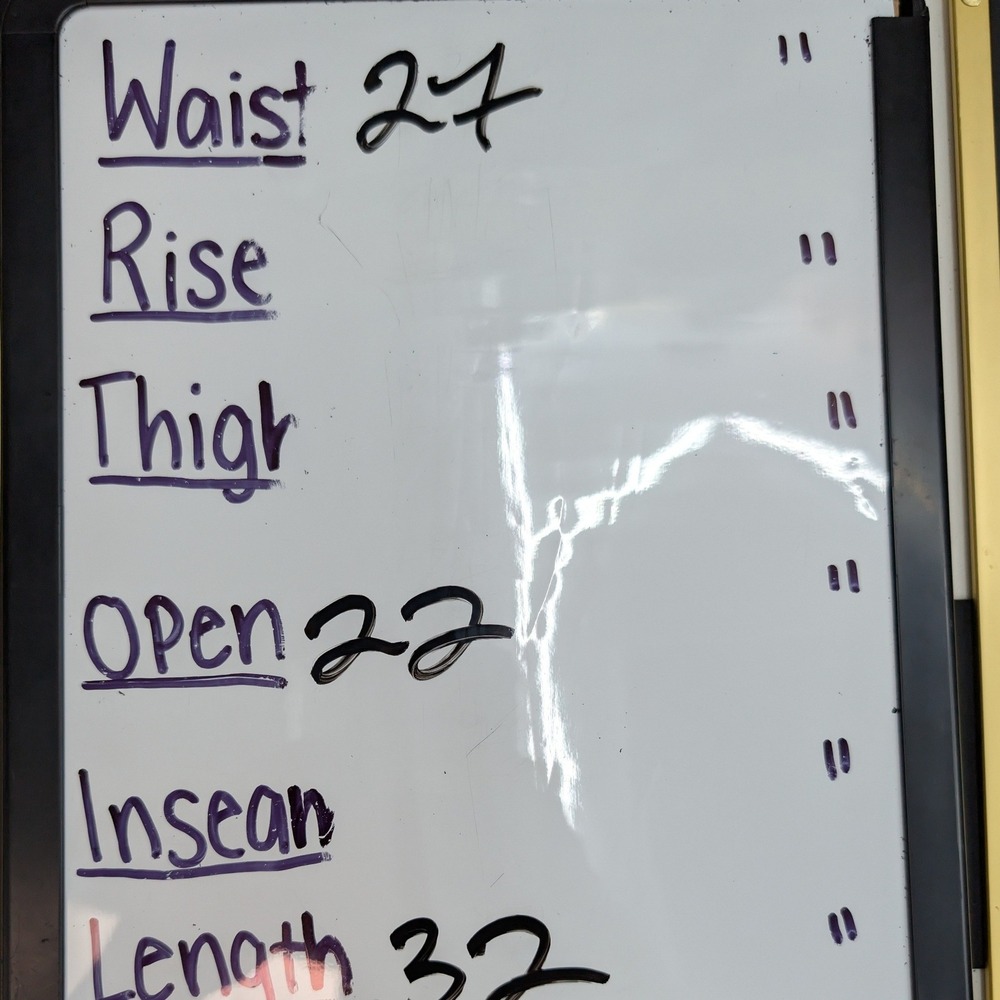 Waist 27 "
Rise "
Thigh "
Open 22 "
Inseam "
Length 32 "